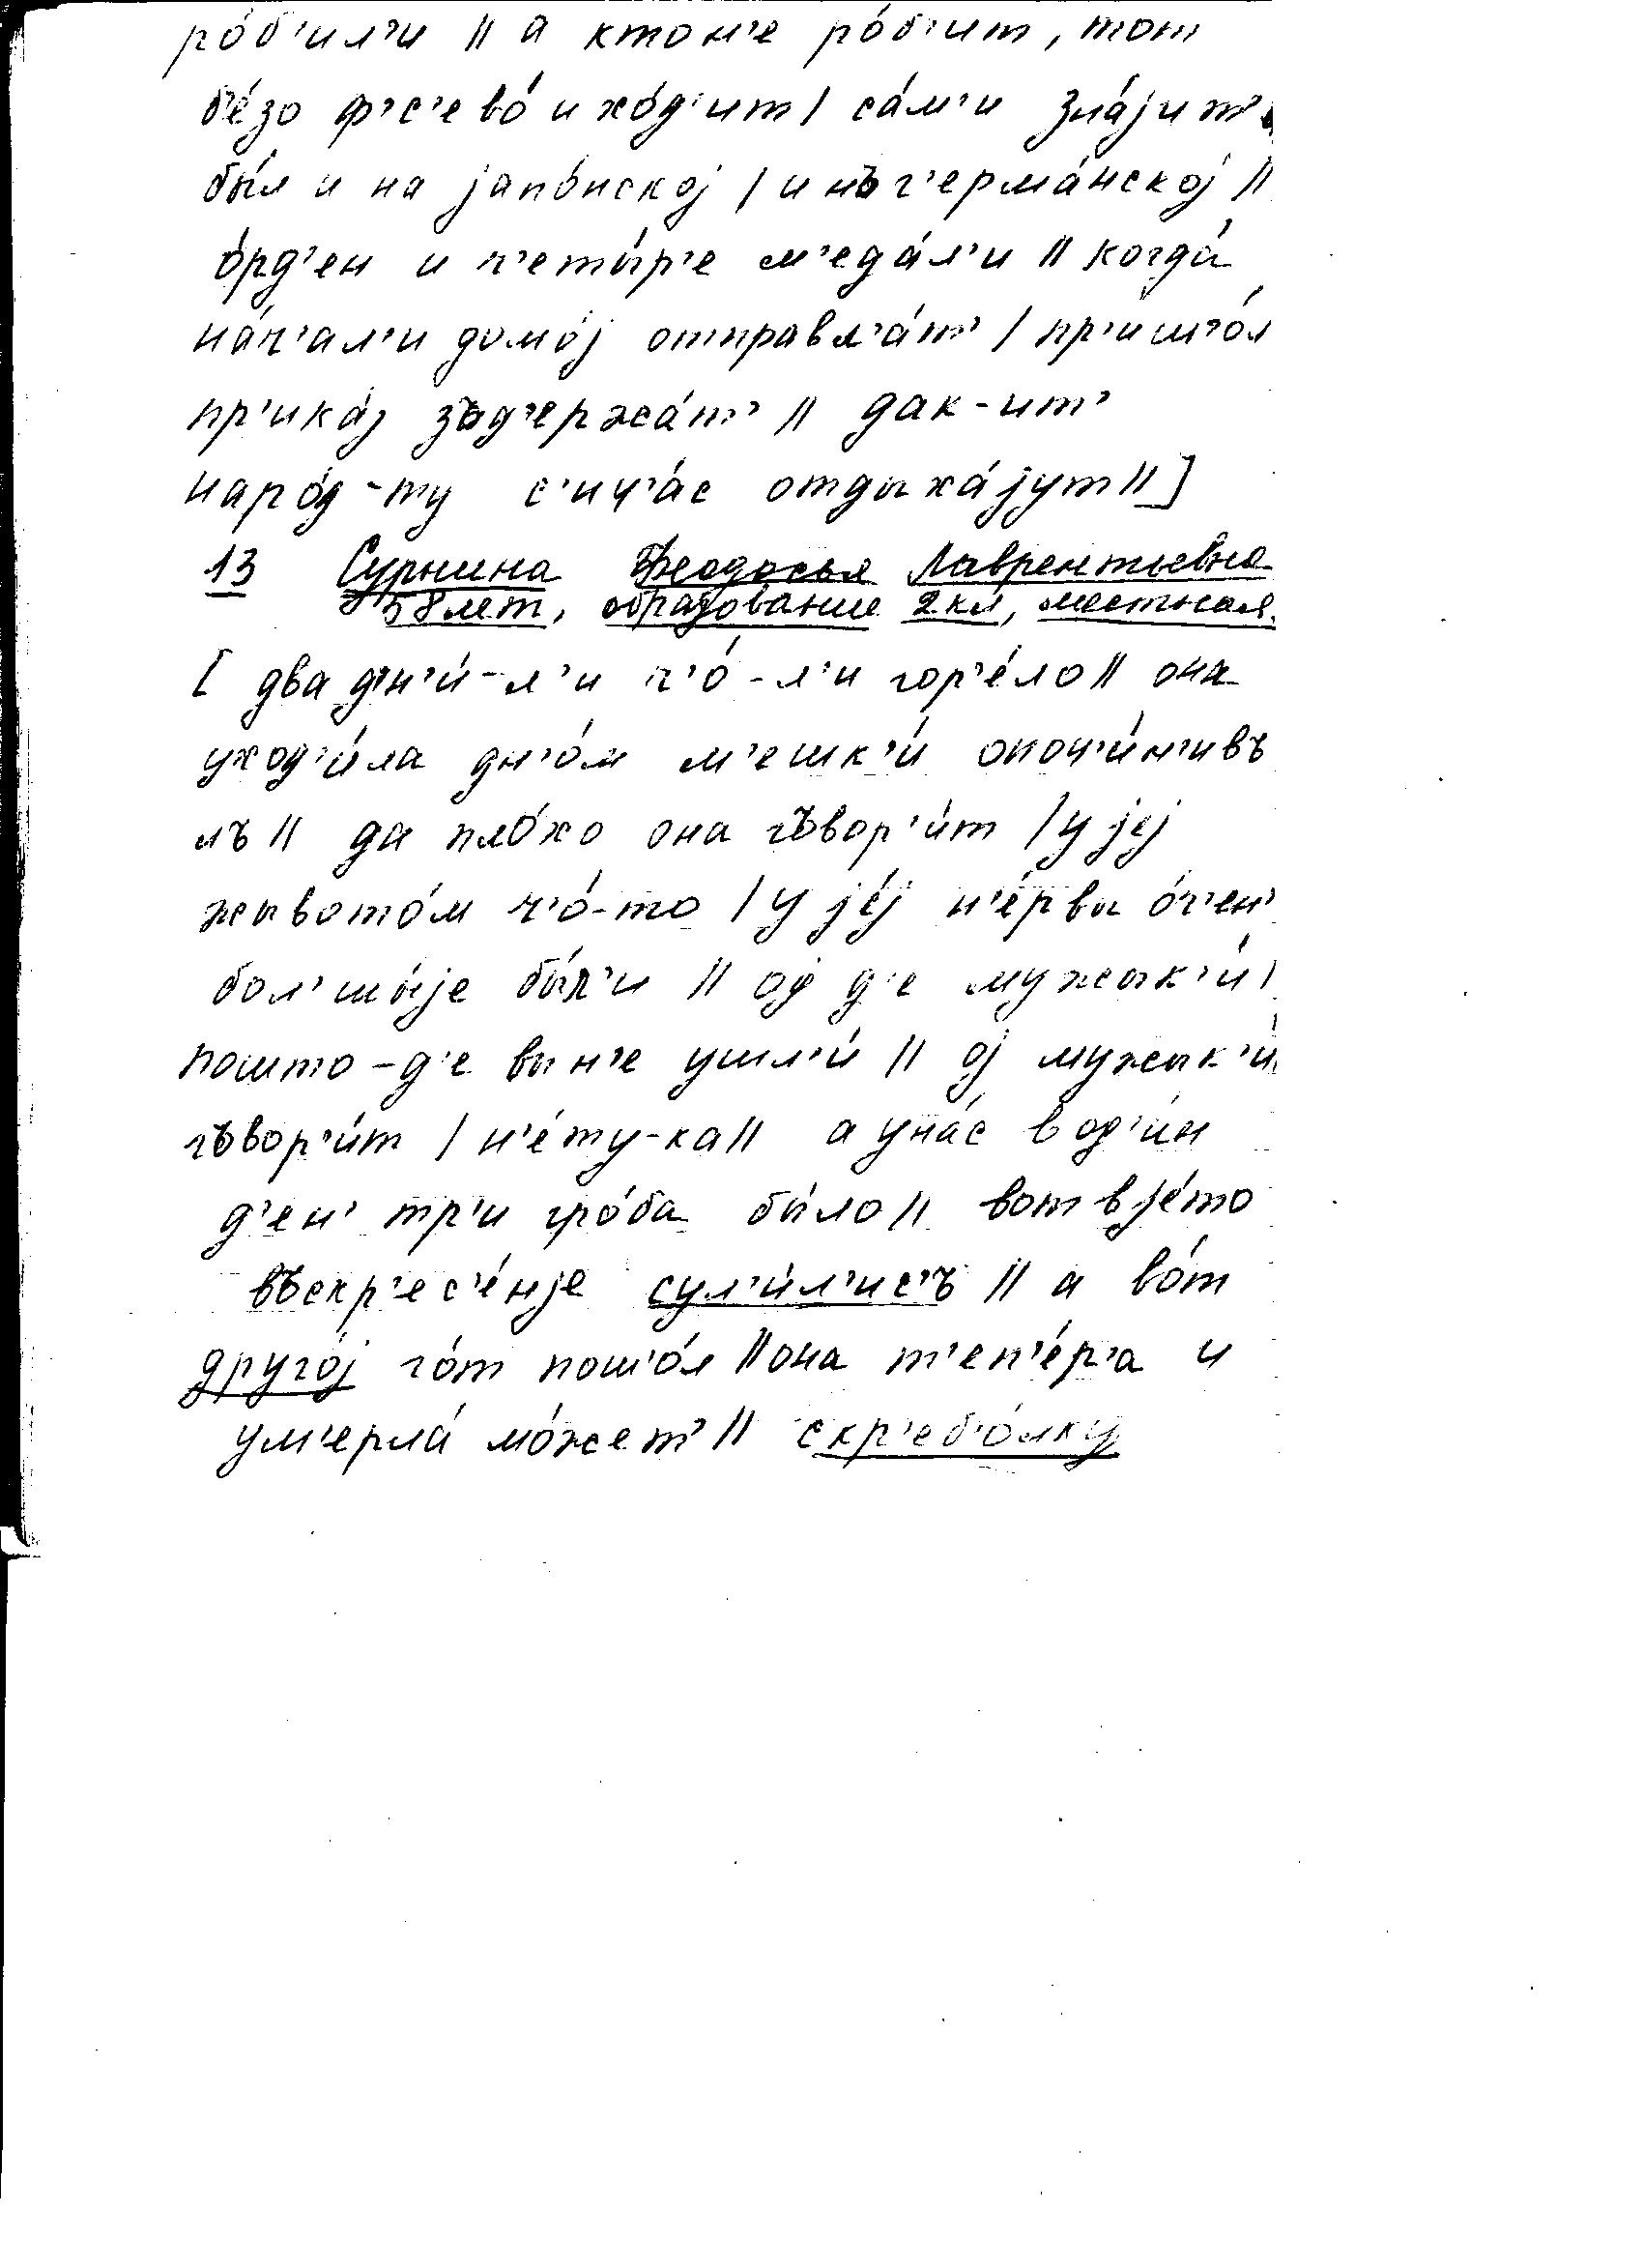 ро́б'ил'и || а кто н'е ро́б'ит, тот
б'е́зо ф'с'ево́ и хо́д'ит | са́м'и зна́јит'
бы́л и на јапо́нској | и нъ г'ерма́нској ||
о́рд'ен и ч'еты́р'е м'еда́л'и || когда́
на́ч'ал'и домо́ј отправл'а́т' | пр'иш'о́л
пр'ика́з зъд'ержа́т' || дак-ит'
наро́д-ту с'ич'а́с отдыха́јут ||]
13 Сурнина Феодосья Лаврентьевна
58 лет, образование 2 кл, местная.
[ два д'н'и́-л'и ч'о́-л'и гор'е́ло || она
уход'и́ла дн'о́м м'ешк'и́ опоч'и́н'ивъ
лъ || да пло́хо она гъвор'и́т | у јеј
жывото́м ч'о́-то | у је́ј н'е́рвы о́ч'ен'
бол'шы́је бы́л'и || ој д'е мужык'и́ |
пошто-д'е вы н'е ушл'и́ || ој мужык'и́
гъвор'и́т | н'е́ту-ка || а у на́с в од'и́н
д'ен' тр'и гро́ба бы́ло || вот в је́то
въскр'ес'е́нје сул'и́л'ис'ъ || а во́т
друго́ј го́т пош'о́л || она т'еп'е́р'а и
ум'ерла́ мо́жет' || скр'еб'о́лку